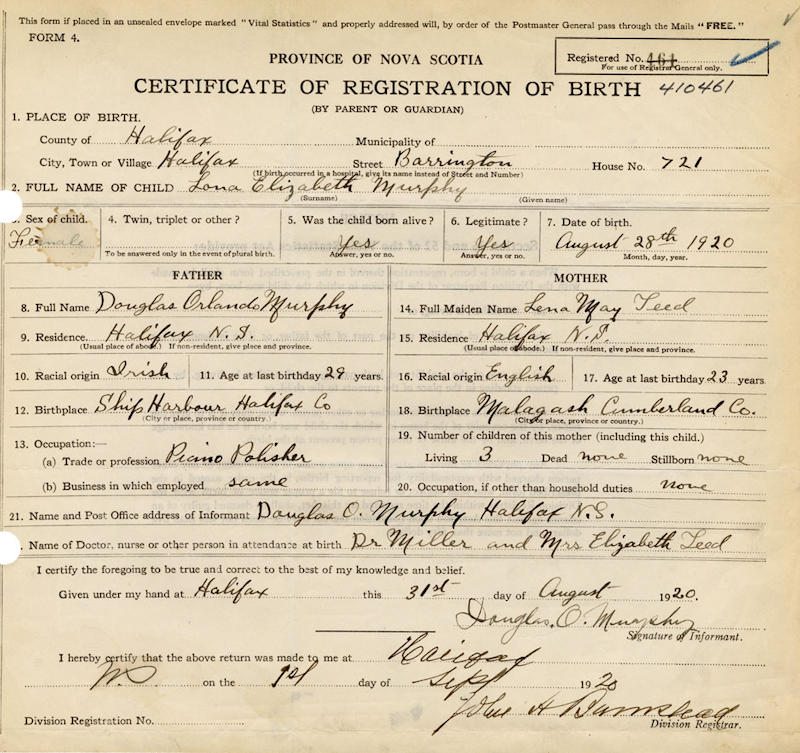 This form if placed in an unsealed envelope marked "Vital Statistics" and properly addressed will, by order of the Postmaster General pass through the Mails "FREE."
FORM 4.
PROVINCE OF NOVA SCOTIA
Registered No. 461
For use of Registrar General only.
CERTIFICATE OF REGISTRATION OF BIRTH 410461
(BY PARENT OR GUARDIAN)
1. PLACE OF BIRTH.
County of Halifax Municipality of
City, Town or Village Halifax Street Barrington House No. 721
(If birth occurred in a hospital, give its name instead of Street and Number)
2. FULL NAME OF CHILD Lona Elizabeth Murphy
(Surname) (Given name)
3. Sex of child. 4. Twin, triplet or other? 5. Was the child born alive? 6. Legitimate? 7. Date of birth.
Female Yes Yes August 28th 1920
To be answered only in the event of plural birth. Answer, yes or no. Answer, yes or no. Month, day, year.
FATHER MOTHER
8. Full Name Douglas Orlando Murphy 14. Full Maiden Name Lena May Teed
9. Residence. Halifax N.S. 15. Residence Halifax N.S.
(Usual place of abode.) If non-resident, give place and province. (Usual place of abode.) If non-resident, give place and province.
10. Racial origin Irish 11. Age at last birthday 29 years. 16. Racial origin English 17. Age at last birthday 23 years.
12. Birthplace Ship Harbour Halifax Co 18. Birthplace Malagash Cumberland Co.
(City or place, province or country.) (City or place, province or country.)
13. Occupation:— 19. Number of children of this mother (including this child.)
(a) Trade or profession Piano Polisher Living 3 Dead none Stillborn none
(b) Business in which employed same 20. Occupation, if other than household duties none
21. Name and Post Office address of Informant Douglas O. Murphy Halifax N.S.
Name of Doctor, nurse or other person in attendance at birth Dr Miller and Mrs Elizabeth Teed
I certify the foregoing to be true and correct to the best of my knowledge and belief.
Given under my hand at Halifax this 31st day of August 1920.
Douglas. O. Murphy
Signature of Informant.
I hereby certify that the above return was made to me at Halifax
on the 1st day of Sept 1920
John H Barnstead
Division Registration No. Division Registrar.